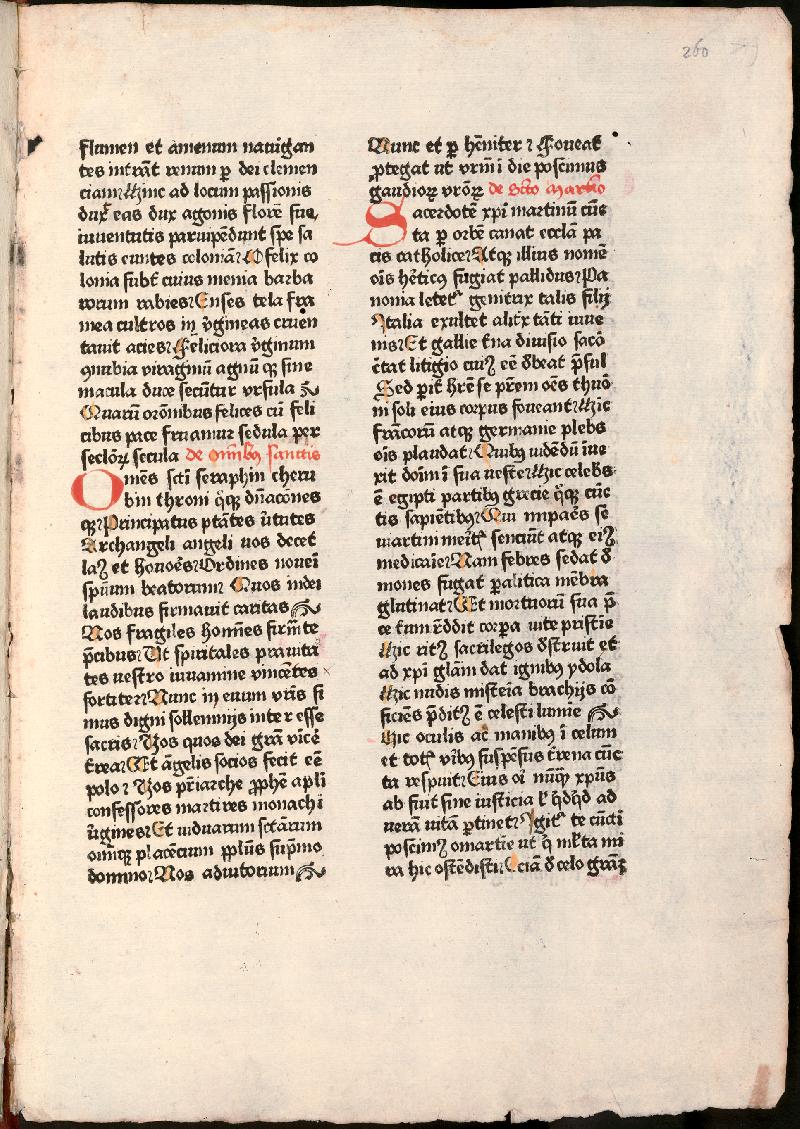 260
flumen et amenum nauigan
tes intrāt renum ꝑ dei clemen
ciam Hinc ad locum passionis
dux̄ eas dux agonis florē sue
iuuentutis paruipēdunt spe sa
lutis euntes coloniā O felix co
lonia subt̄ cuius menia barba
rorum rabies Enses tela fra
mea cultros in v̄gineas cruen
tauit acies Feliciora v̄ginum
ꝯnubia viraginū agnū qꝫ sine
macula duce secūtur vrsula
Quarū orōnibus felices cū feli
cibus pace fruamur sedula per
seclōꝝ secula de omībꝰ sanctis
Omēs scti seraphin cheru
bin throni q̊qꝫ dn̄acōnes
qꝫ Principatus ptātes v̄tutes
Archangeli angeli uos decet
laꝰ et honoēs Ordines nouē
spūum beatorum Quos in dei
laudibus firmauit caritas
Nos fragiles homīes firmᷓte
p̄cibus Vt spiritales prauita
tes uestro iuuamine vincētes
fortiter Nunc in euum vr̄is si
mus digni sollemnijs interesse
sacris Vos quos dei grā vīcē
t̄rea Et āgelis socios fecit eē
polo Vos pr̄iarche ꝓphē apl̄i
confessores martires monachi
v̄gines Et viduarum sctārum
om̄iqꝫ placētium pplūs sup̄mo
domino Nos adiutorium
Nunc et ꝑ hēniter Foueat
ꝓtegat ut vrm̄ ī die poscimus
gaudioꝝ vrōꝝ de scto Martīo
Sacerdotē xp̄i martinū cūc
ta ꝑ orbē canat ecclā pa
cis catholice Atqꝫ illius nomē
oīs hēticꝰ fugiat pallidus Pa
nonia letetᷣ genitrix talis filij
Italia exultet alitx̄ tāti iuue
nis Et gallie t̄na diuisio sacō
c̄tat litigio cuiꝰ eē d̄beat p̄sul
Sed pit̄ hr̄e se pr̄em oēs thuō
ni soli eius corpus foueant Hic
frācorū atqꝫ germanie plebs
oīs plaudat Quibꝰ uidēdū īue
xit doīm ī sua ueste Hic celebs
ē egipti partibꝰ grecie q̊qꝫ cūc
tis sapiētibꝰ Qui impaēs se
martini meītꝭ senciūt atqꝫ eiꝰ
medicaīe Nam febres sedat d̄
mones fugat ꝑalitica mēbra
glutinat Et mortuorū sua p̄
ce t̄um r̄ddit corpa uite pristīe
Hic ritꝰ sacrilegos d̄struit et
ad xp̄i glām dat ignibꝰ ydola
Hic nudis misteīa brachijs cō
ficiēs p̄ditꝰ ē celesti lumīe
Hic oculis ac̄ manibꝰ ī celum
et totꝭ v̄ibꝰ suspēsus t̄rena cūc
ta respuit Eius oī nūqꝫ xpūs
ab fuit siue iusticia ł q̄dq̄d ad
verā uitā ꝑtinet Igitᷣ te cūcti
poscimꝰ o martīe ut q̄ ml̄ta mi
ra hic ostēdisti Eciā d̄ celo grāꝫ